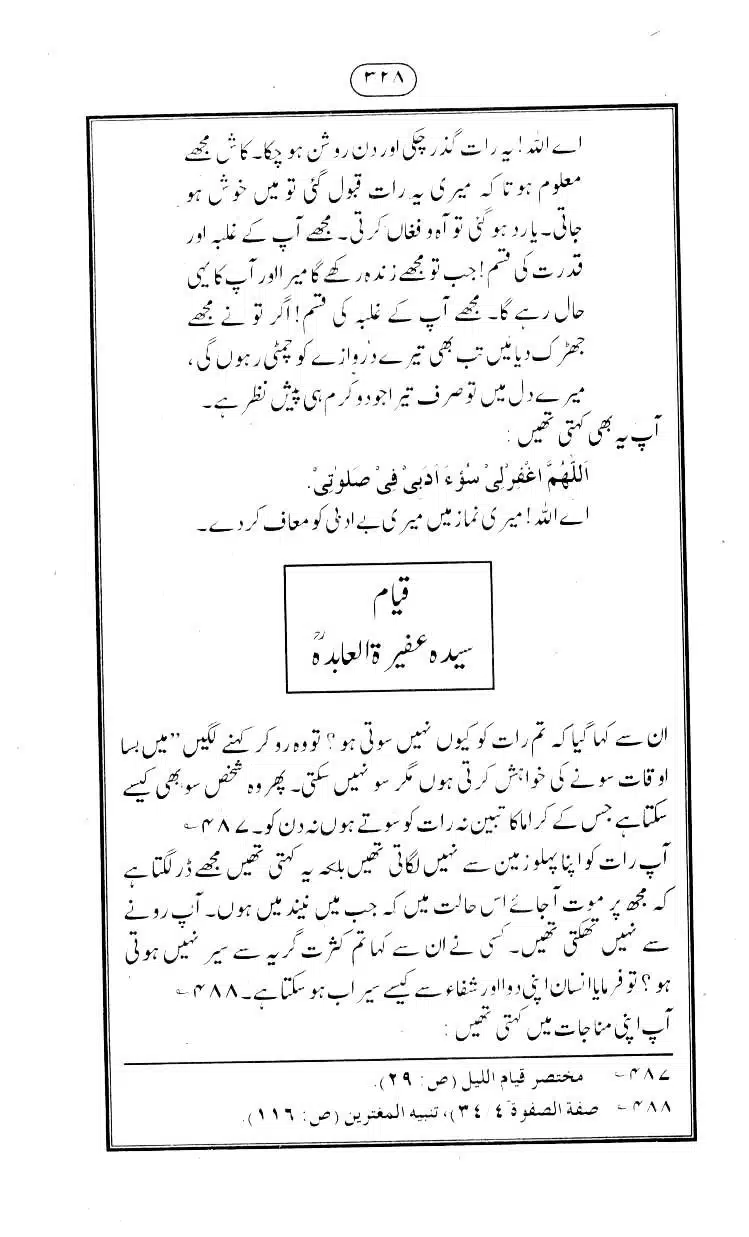 ۳۲۸
اے اللہ! یہ رات گذر چکی اور دن روشن ہو چکا۔ کاش مجھے
معلوم ہوتا کہ میری یہ رات قبول گئی تو میں خوش ہو
جاتی۔ یا رد ہو گئی تو آہ و فغاں کرتی۔ مجھے آپ کے غلبہ اور
قدرت کی قسم! جب تو مجھے زندہ رکھے گا میرا اور آپ کا یہی
حال رہے گا۔ مجھے آپ کے غلبہ کی قسم! اگر تو نے مجھے
جھڑک دیا میں تب بھی تیرے دروازے کو چمٹی رہوں گی،
میرے دل میں تو صرف تیرا جود و کرم ہی پیش نظر ہے۔
آپ یہ بھی کہتی تھیں :
اَللّٰهُمَّ اغْفِرْلِیْ سُوْءَ اَدَبِیْ فِیْ صَلوٰتِیْ.
اے اللہ! میری نماز میں میری بے ادبی کو معاف کر دے۔
قیام
سیدہ عفیرۃ العابدہؒ
ان سے کہا گیا کہ تم رات کو کیوں نہیں سوتی ہو؟ تو وہ رو کر کہنے لگیں ”میں بسا
اوقات سونے کی خواہش کرتی ہوں مگر سو نہیں سکتی۔ پھر وہ شخص سو بھی کیسے
سکتا ہے جس کے کراماً کاتبین نہ رات کو سوتے ہوں نہ دن کو۔ ۴۸۷؎
آپ رات کو اپنا پہلو زمین سے نہیں لگاتی تھیں بلکہ یہ کہتی تھیں مجھے ڈر لگتا ہے
کہ مجھ پر موت آ جائے اس حالت میں کہ جب میں نیند میں ہوں۔ آپ رونے
سے نہیں تھکتی تھیں۔ کسی نے ان سے کہا تم کثرت گریہ سے سیر نہیں ہوتی
ہو؟ تو فرمایا انسان اپنی دوا اور شفاء سے کیسے سیراب ہو سکتا ہے۔ ۴۸۸؎
آپ اپنی مناجات میں کہتی تھیں :
۴۸۷؎ مختصر قيام الليل (ص: ٢٩).
۴۸۸؎ صفة الصفوة ٤/٣٤)، تنبيه المغترين (ص: ١١٦).